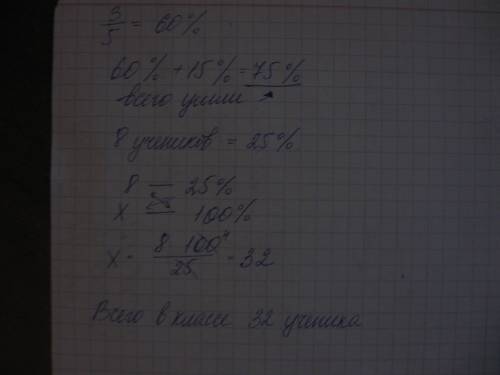 3/5 = 60%
60% + 15% = 75%
всего учили
8 учеников = 25%
8 — 25%
x — 100%
x = 8 100⁴ / 25 = 32
Всего в классе 32 ученика